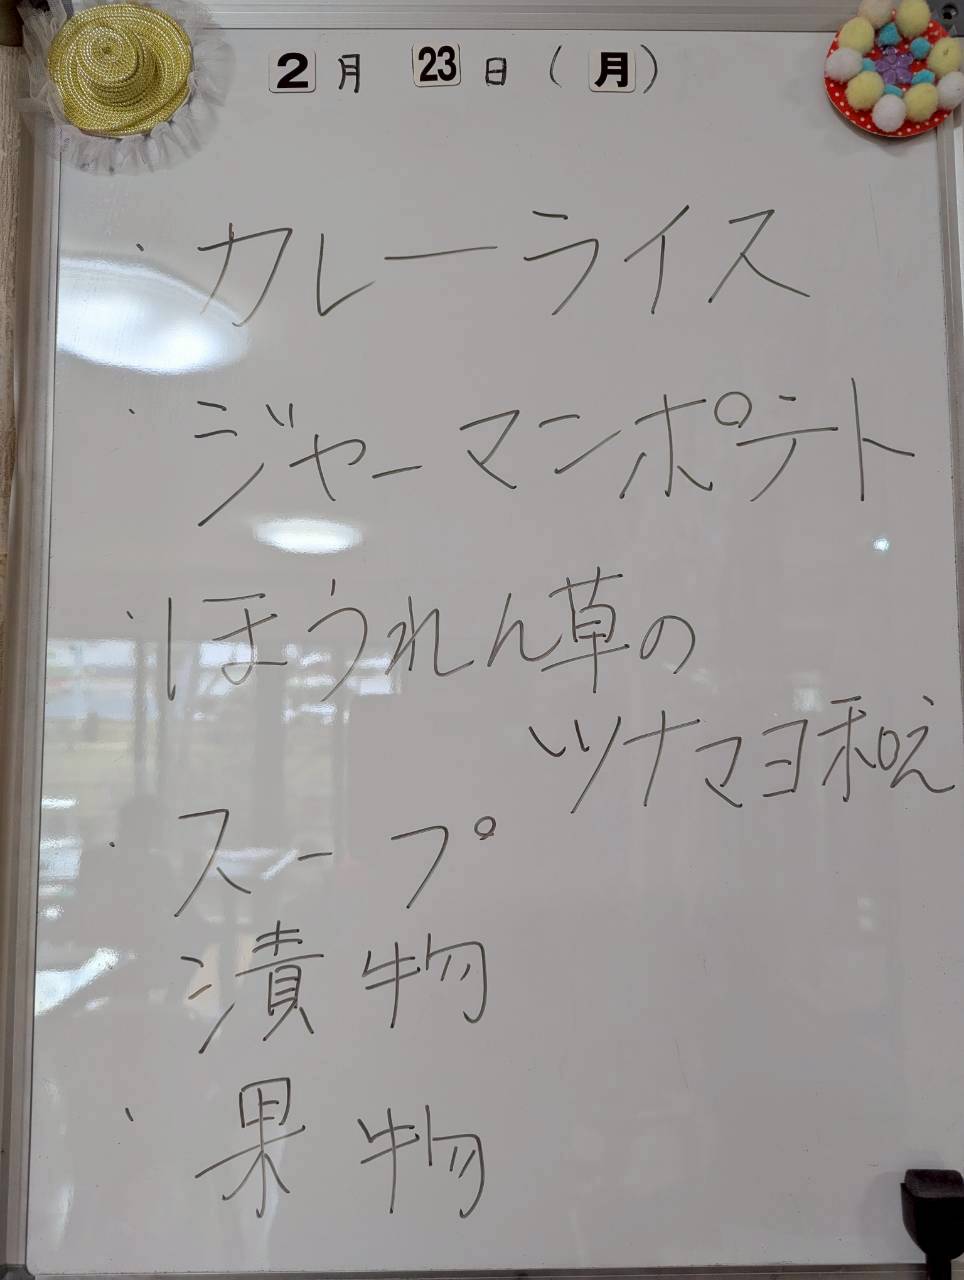 2月 23日(月)
・カレーライス
・ジャーマンポテト
・ほうれん草の
ツナマヨ和え
・スープ
漬物
・果物